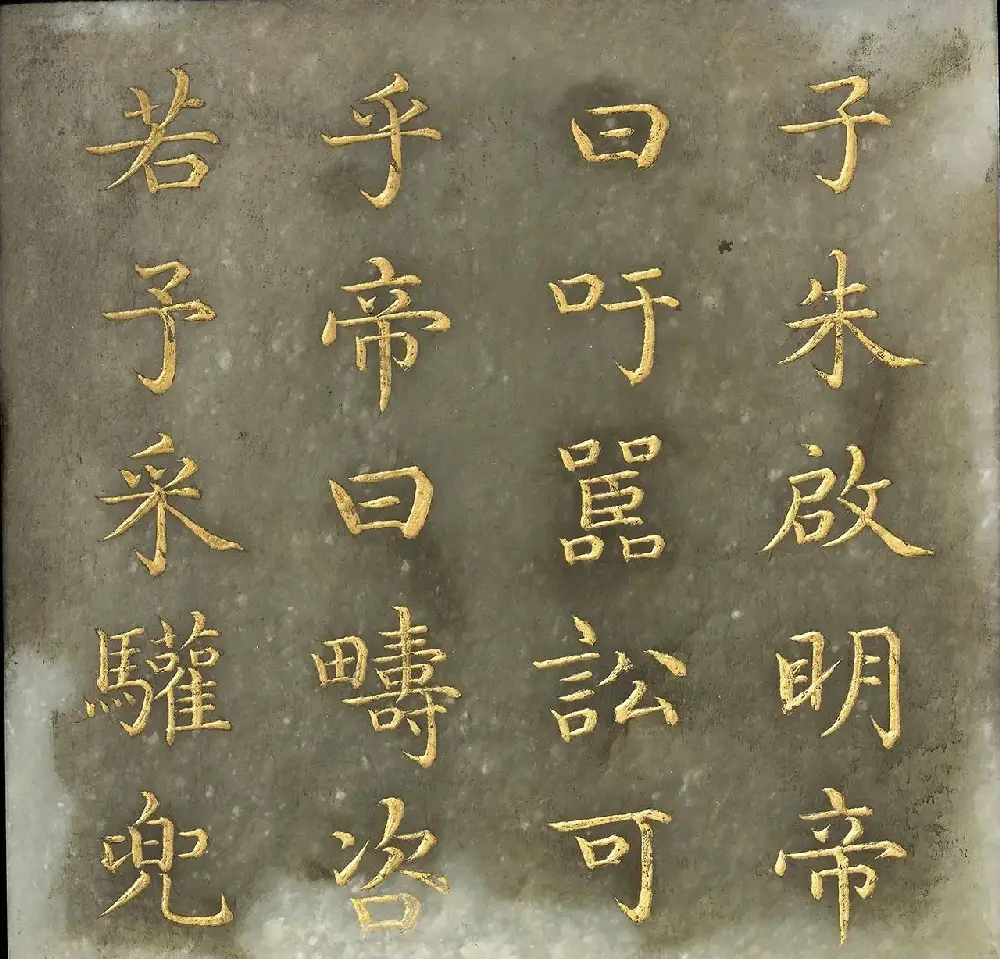 子朱啟明帝
曰吁嚚訟可
乎帝曰疇咨
若予采驩兜